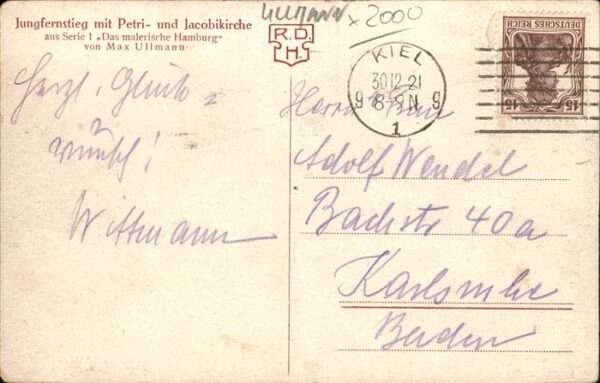 Jungfernstieg mit Petri- und Jacobikirche
aus Serie I „Das malerische Hamburg"
von Max Ullmann
Ullmann x 2000
R. D.
H.
KIEL
30.12.21
9 8-9 N 9
1
DEUTSCHES REICH
15 15
Herzl. Glück=
wunsch!
Wittmann
Herrn
Adolf Wendel
Bachstr 40a
Karlsruhe
Baden